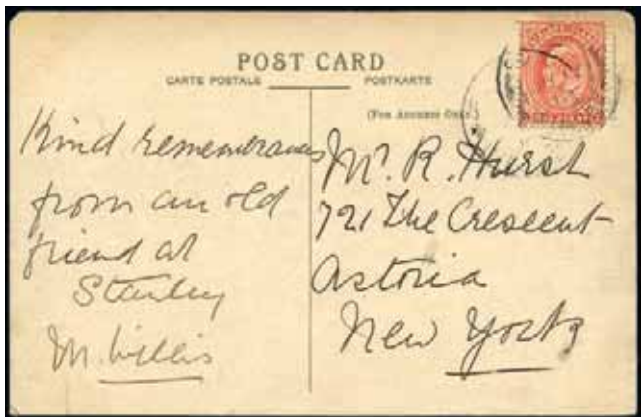 POST CARD
CARTE POSTALE POSTKARTE
(For Address Only.)
Kind remembrances
from an old
friend at
Stanley
M. Willis
Mr. R. Hurst
721 The Crescent
Astoria
New York